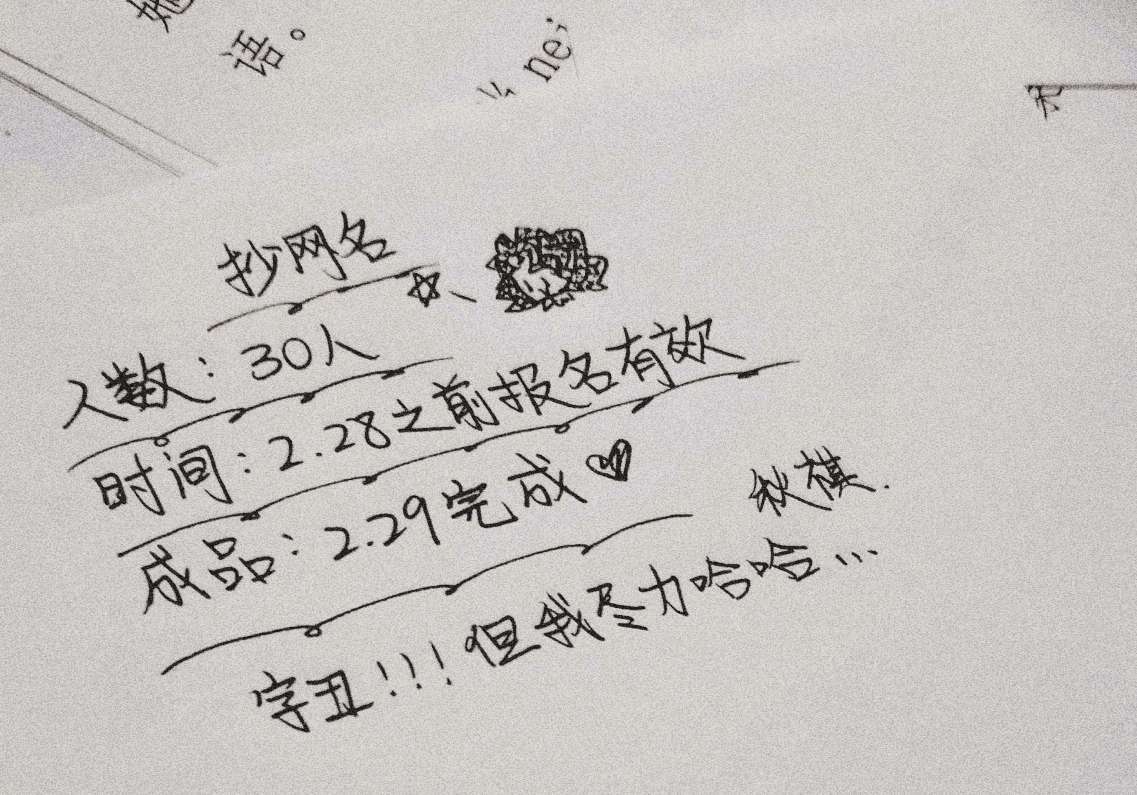 语。
ne;
抄网名
人数:30人
时间:2.28之前报名有效
成品:2.29完成
秋祺.
字丑!!!但我尽力哈哈...